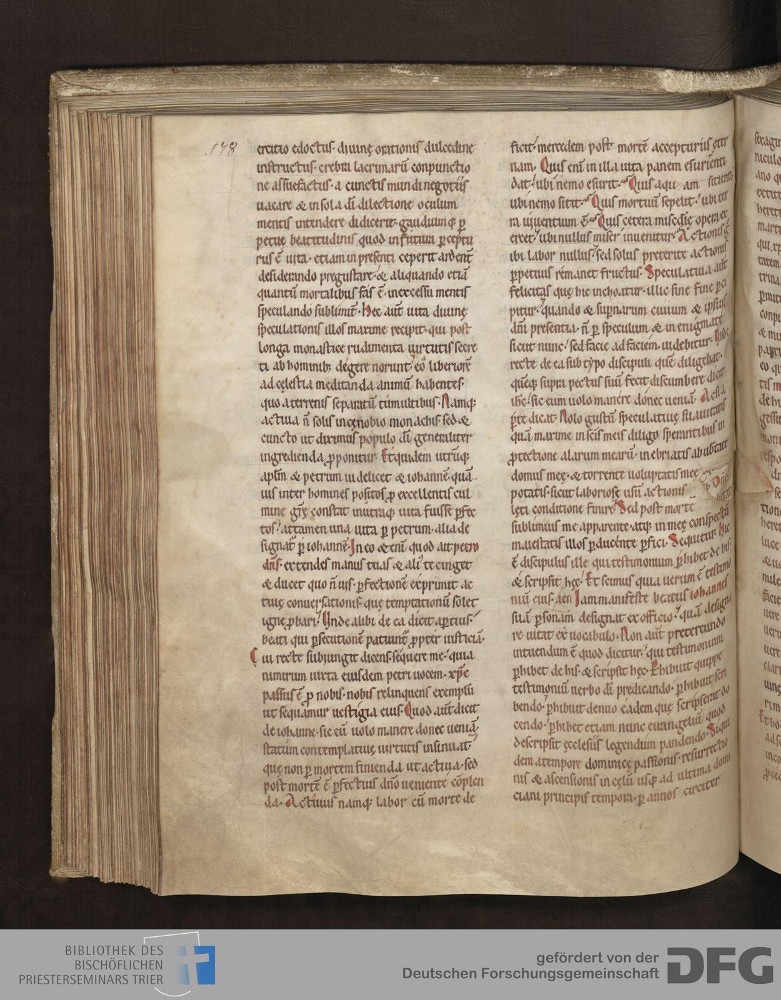 .178
ercitio edoctus· diuinę orationis dulcedine
instructus· crebra lacrimarū conpunctio
ne assuefactus· a cunctis mundi negotiis
uacare & in sola dī dilectione oculum
mentis intendere didicerit· gaudiumq; ꝑ
petuę beatitudinis quod in futura ꝑceptu
rus ē uita· etiam in presenti ceperit ardent̄
desiderando pregustare· & aliquando etiā
quantū mortalibus fas ē· in excessu mentis
speculando sublimit̄· Hec aut̄ uita diuinę
speculationis illos maxime recipit· qui post
longa monasticę rudimenta uirtutis secre
ti ab hominib; degere norunt· eo liberiorē
ad cęlestia meditanda animū habentes·
quo a terrenis separatū tumultibus· Namq;
actiua n̄ solis in cęnobio monachis sed &
cuncto ut diximus populo dī generaliter
ingredienda ꝓponitur· Et quidem utrūq;
aplm̄ & petrum uidelicet & iohannē quā
uis inter homines positos ꝓ excellentis cul
mine grę constat in utraq; uita fuisse ꝑfec
tos· attamen una uita ꝑ petrum· alia de
signat̄ ꝑ iohannē· In eo & enī quod ait petro
dn̄s· extendes manus tuas & aliꝰ te cinget
& ducet quo n̄ uis· ꝑfectionē exprimit ac
tiuę conuersationis· quę temptationū solet
igne ꝓbari· Unde alibi de ea dicit aꝑtius·
beati qui ꝑsecutionē patiunt̄ ꝓpter iusticiā·
Cui recte subiungit dicens· sequere me· quia
nimirum iuxta eiusdem petri uocem· xp̄c
passus ē ꝓ nobis· nobis relinquens exemplū
ut sequamur uestigia eius· Quod aut̄ dicit
de iohanne· sic eū uolo manere donec ueniā·
statum contemplatiuę uirtutis insinuat·
quę non ꝑ mortem finienda ut actiua· sed
post mortē ē ꝑfectius dn̄o ueniente cōplen
da· Actiuus namq; labor cū morte de
ficit· mercedem post mortē accepturus ęter
nam· Quis enī in illa uita panem esurienti
dat· ubi nemo esurit· Quis aquam sitienti
ubi nemo sitit· Quis mortuū sepelit· ubi ter
ra uiuentium ē· Quis cetera misc̄dię opera ex
ercet· ubi nullus miser inuenitur· Actionis g̊
ibi labor nullus· sed solus preteritę actionis
ꝑpetuus remanet fructus· Speculatiua aut̄
felicitas quę hic inchoatur· illic sine fine ꝑci
pitur· quando & sup̄narum ciuium & ipsius
dn̄i presentia· n̄ ꝑ speculum & in enigmate
sicut nunc· sed facie ad faciem uidebitur· Unde
recte de ea sub typo discipuli quē diligebat·
quēq; supra pectus suū fecit discumbere dicit
ih̄c· sic eum uolo manere donec ueniā·
dicat· Nolo gustū speculatiuę suauitatis
quā maxime in scīs meis diligo sperantibus in
ꝓtectione alarum mearū· inebriatis ab ubertate
domus meę· & torrente uoluptatis meę
potatis· sicut laboriosę usū actionis
condicione finire· Sed post morte
sublimius me apparente· atq; in meę conspectu
maiestatis illos ꝑducente ꝑfici· Sequitur· Hic
ē discipulus ille qui testimonium ꝑhibet de his
& scripsit hęc· Et scimus quia uerum ē testimo
niū eius· Iam manifeste beatus iohannes
suā ꝑsonam designat ex officio· quā designa
re uitat ex uocabulo· Non aut̄ pretereundo
intuendum ē quod dicitur· qui testimonium
ꝑhibet de his· & scripsit hęc· Phibuit quippe
testimoniū uerbo dī predicando· ꝑhibuit scri
bendo· ꝑhibuit denuo eadem que scripserat do
cendo· ꝑhibet etiam nunc euangeliū quod
descripsit ęcclesiis legendum pandendo· Siqui
dem a tempore dominicę passionis· resurrectio
nis & ascensionis in cęlū usq; ad ultima domi
ciani principis tempora· ꝑ annos circiter
BIBLIOTHEK DES
BISCHÖFLICHEN
PRIESTERSEMINARS TRIER
gefördert von der
Deutschen Forschungsgemeinschaft
DFG